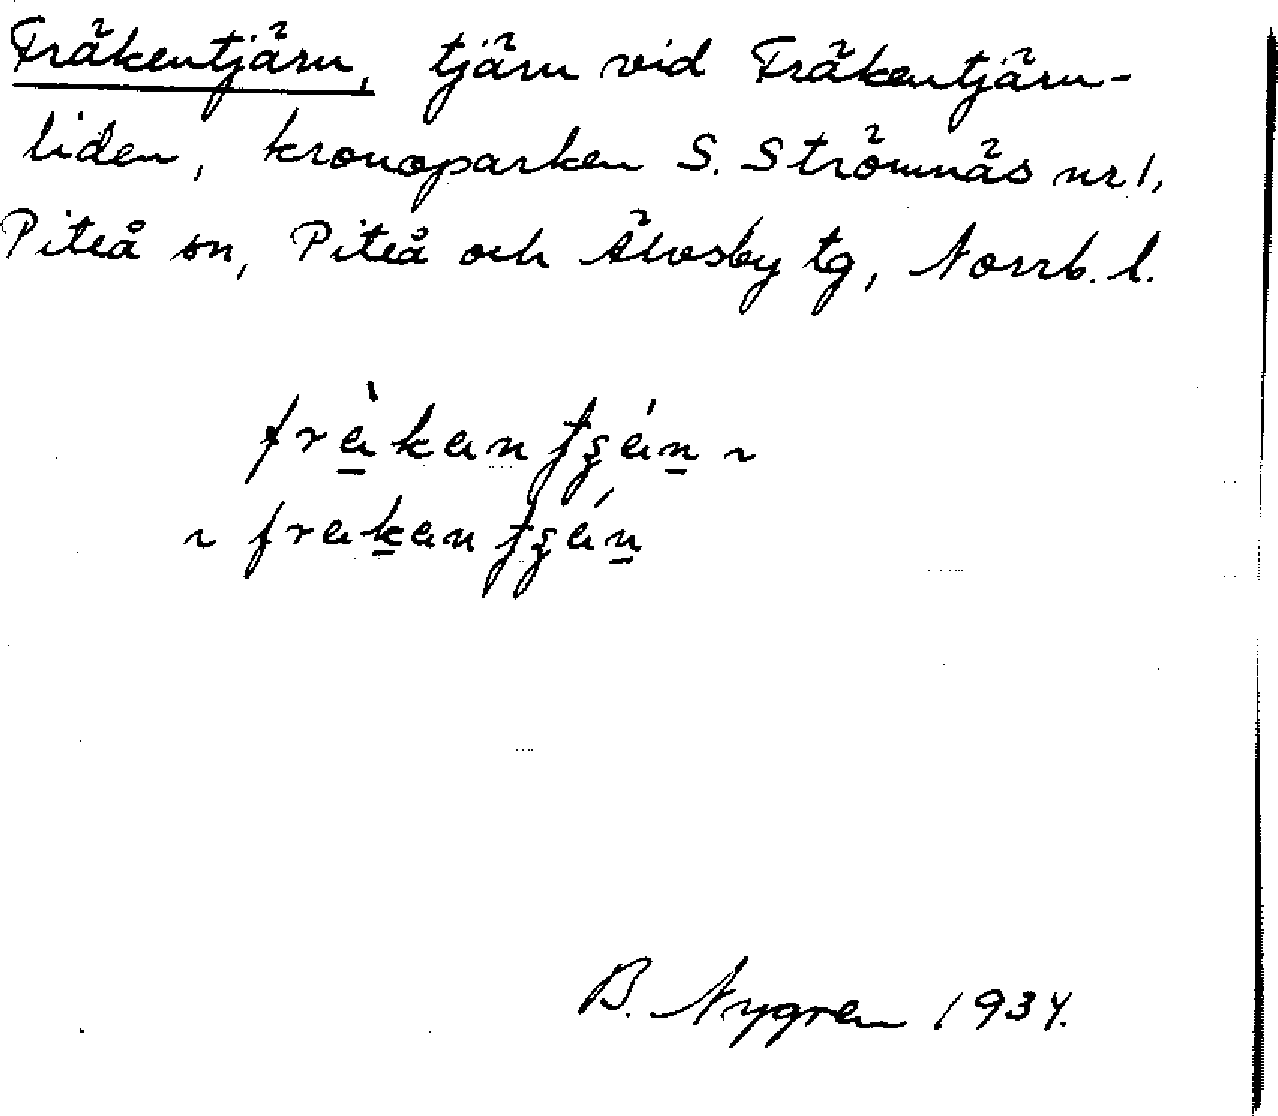 Fräkentjärn, tjärn vid Fräkentjärn-
liden, kronoparken S. Strömnäs nr 1,
Piteå sn, Piteå och Älvsby tg, Norrb. l.
fràkan tşán ~
~ frakan tşán
B. Nygren 1934.